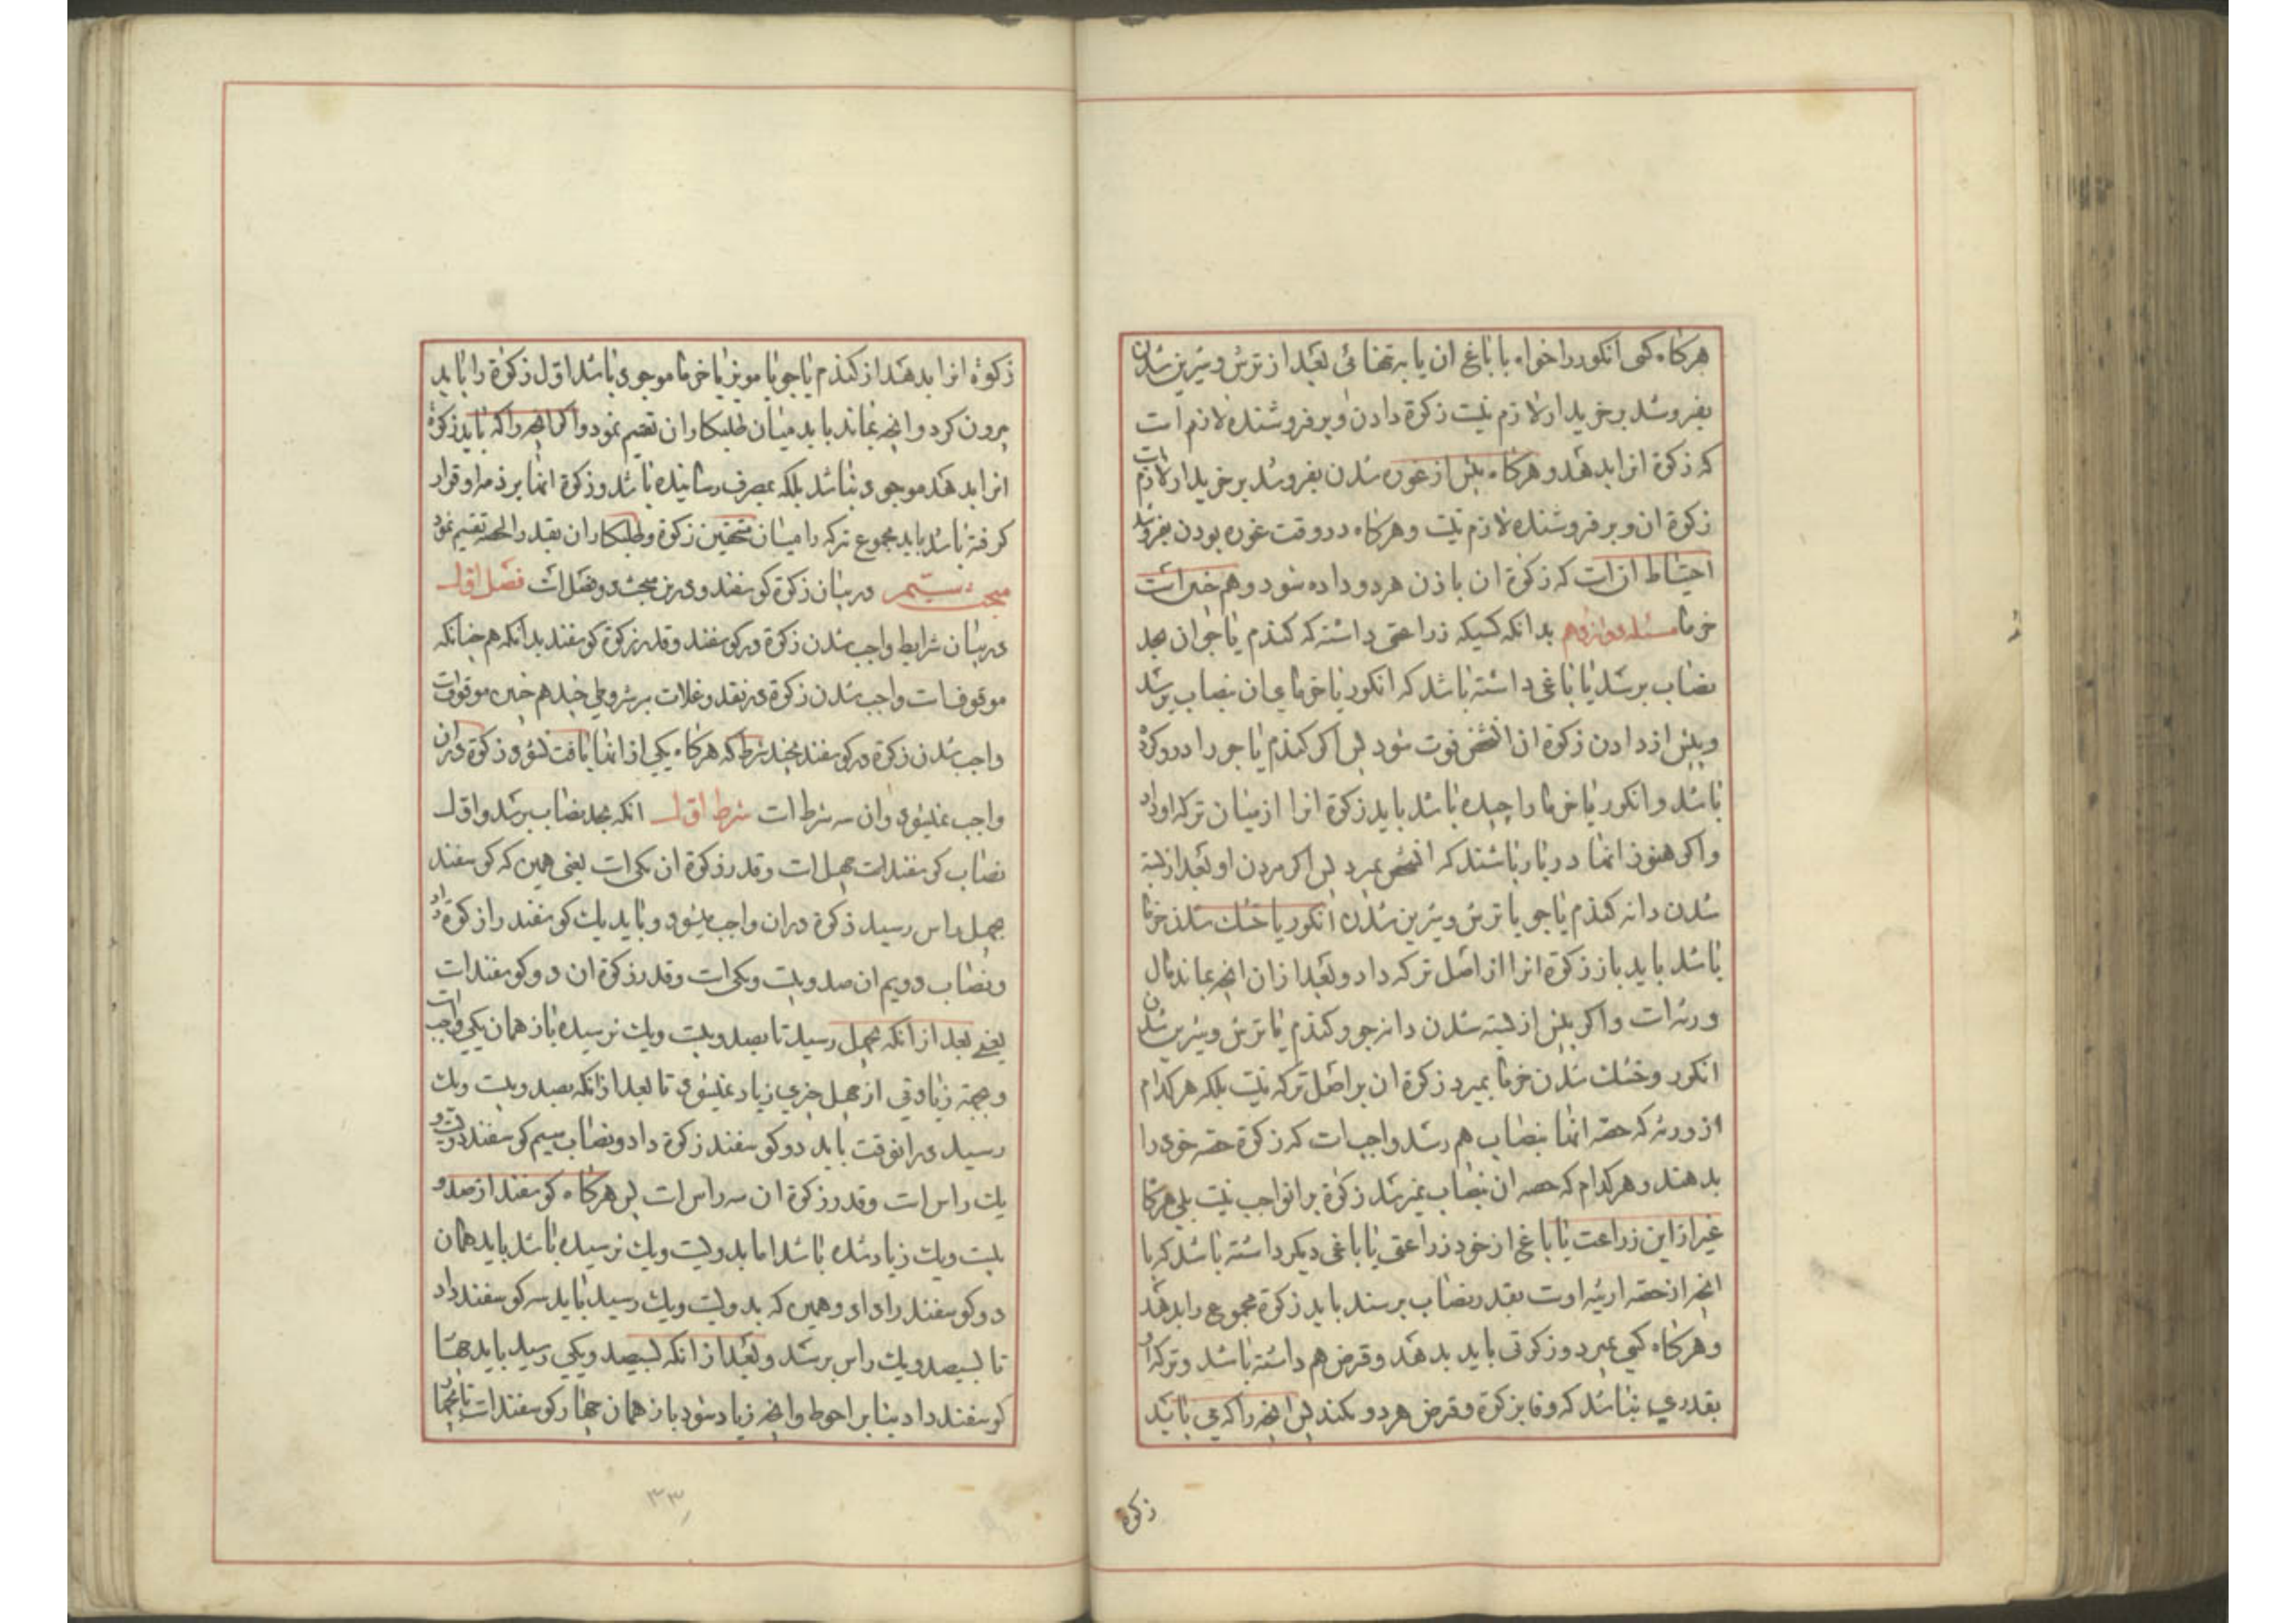 هرکاه کسی انکور را خواه با باغ ان یا به تنهائی بعد از ترش و شیرین شدن
بفروشد بر خریدار لازم نیست زکوة دادن و بر فروشنده لازم است
که زکوة انرا بدهد و هرکاه پیش از غوره شدن بفروشد بر خریدار لازم است
زکوة ان و بر فروشنده لازم نیست و هرکاه در وقت غوره بودن بفروشد
احتیاط ان است که زکوة ان باذن هر دو داده شود و هم چنین است
خرما مسئله دوازدهم بدانکه کسیکه زراعتی داشته که کندم یا جو ان بحد
نصاب برسد یا باغی داشته باشد که انکور یا خرمای ان بنصاب برسد
و پیش از دادن زکوة ان انشخص فوت شود پس اکر کندم یا جو را درو کرده
باشد و انکور یا خرما را چیده باشد باید زکوة انرا از میان ترکه او داد
و اکر هنوز انها در بار باشند که انشخص بمیرد پس اکر مردن او بعد از بسته
شدن دانه کندم یا جو یا ترش و شیرین شدن انکور یا خشك شدن خرما
باشد باید باز زکوة انرا از اصل ترکه داد و بعد از ان انچه بماند مال
ورثه است و اکر پیش از بسته شدن دانه جو و کندم یا ترش و شیرین شدن
انکور و خشك شدن خرما بمیرد زکوة ان بر اصل ترکه نیست بلکه هرکدام
از ورثه که حصه انها بنصاب هم رسد واجب است که زکوة حصه خود را
بدهند و هرکدام که حصه ان بنصاب نمیرسد زکوة بر او واجب نیست بلی هرکا
غیر از این زراعت یا باغ از خود زراعتی یا باغی دیکر داشته باشد که با
انچه از حصه ارثیه اوست بقدر نصاب برسند باید زکوة مجموع را بدهد
و هرکاه کسی بمیرد و زکوتی باید بدهد و قرض هم داشته باشد و ترکه او
بقدری نباشد که وفا بزکوة و قرض هر دو بکند پس انچه را که می باید
زکوة
زکوة انرا بدهند از کندم یا جو یا مویز یا خرما موجود باشد اول زکوة را باید
بیرون کرد و انچه بماند باید میان طلبکاران تقسیم نمود و اکر انچه را که باید زکوة
انرا بدهد موجود نباشد بلکه بمصرف رسانیده باشد و زکوة انها بر ذمه او قرار
کرفته باشد باید مجموع ترکه را میان مستحقین زکوة و طلبکاران بقدر الحصه تقسیم نمود
مبحث سیم در بیان زکوة کوسفند و در این مبحث دو فصل است فصل اول
در بیان شرایط واجب شدن زکوة در کوسفند و قدر زکوة کوسفند بدانکه هم چنانکه
موقوف است واجب شدن زکوة در نقد و غلات بر شروطی چند هم چنین موقوف است
واجب شدن زکوة در کوسفند بچند شرط که هرکاه یکی از انها یافت نشود زکوة در ان
واجب نمیشود و ان سه شرط است شرط اول انکه بحد نصاب برسد و اول
نصاب کوسفند است چهل است و قدر زکوة ان یکی است یعنی همین که کوسفند
بچهل راس رسید زکوة در ان واجب میشود و باید یك کوسفند را زکوة داد
و نصاب دویم ان صد و بیست و یکی است و قدر زکوة ان دو کوسفند است
یعنی بعد از انکه بچهل رسید تا بصد و بیست و یك نرسیده باز همان یکی واجب است
و بجهة زیادتی از چهل چیزی زیاد نمیشود تا بعد از انکه بصد و بیست و یك
رسید در انوقت باید دو کوسفند زکوة داد و نصاب سیم کوسفند دویست و
یك راس است و قدر زکوة ان سه راس است پس هرکاه کوسفند از صد و
بیست و یك زیاد شده باشد اما بدویست و یك نرسیده باشد باید همان
دو کوسفند را داد و همین که بدویست و یك رسید باید سه کوسفند داد
تا بسیصد و یك راس برسد و بعد از انکه بسیصد و یکی رسید باید چهار
کوسفند داد بنا بر احوط و انچه زیاد شود باز همان چهار کوسفند است
۳۳